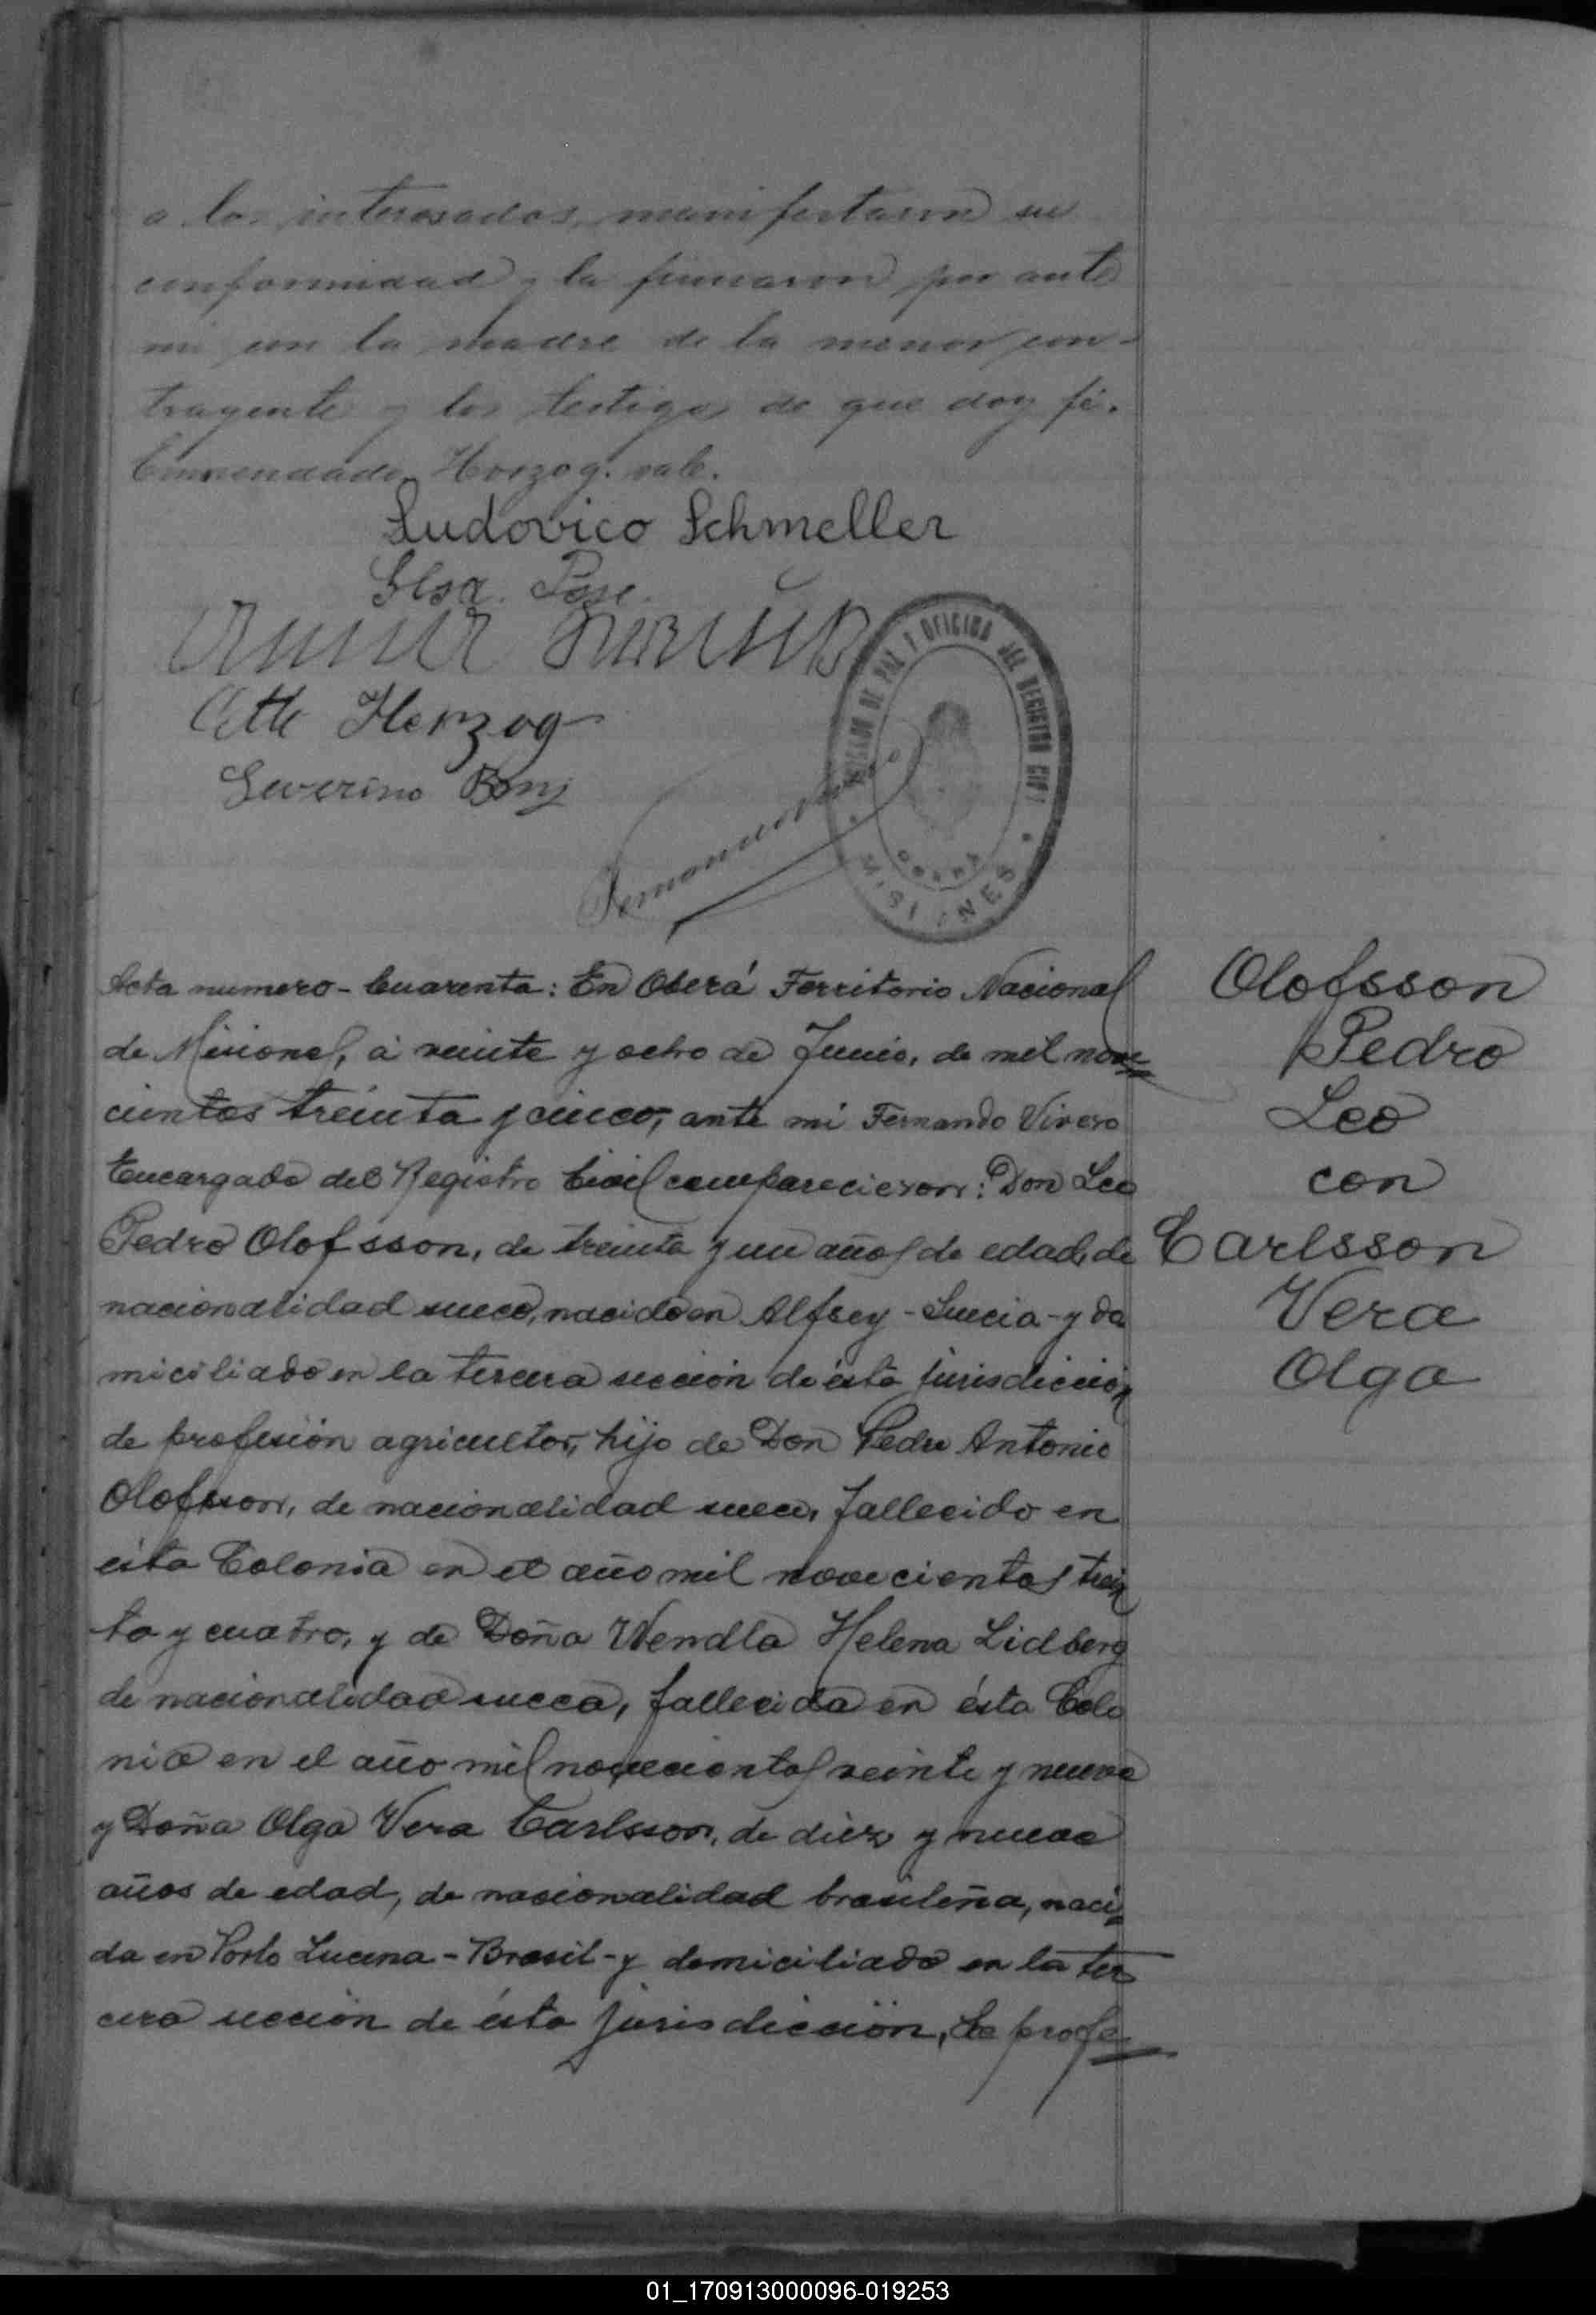 a los interesados, manifestaron su
conformidad y la firmaron por ante
mi con la madre de la menor con-
trayente y los testigos de que doy fé.
Enmendado Herzog. vale.
Ludovico Schmeller
Elsa. Pose.
Herzog
Severino
JUZGADO DE PAZ Y OFICINA DEL REGISTRO CIVIL
OBERA
MISIONES
Acta numero - Cuarenta: En Oberá Territorio Nacional
de Misiones, á veinte y ocho de Junio, de mil nove
cientos treinta y cinco, ante mi Fernando Vivero
Encargado del Registro Civil comparecieron: Don Leo
Pedro Olofsson, de treinta y un años de edad, de
nacionalidad sueco, nacido en Alfsey - Suecia - y do
miciliado en la tercera sección de ésta jurisdicción
de profesión agricultor, hijo de Don Pedro Antonio
Olofsson, de nacionalidad sueco, fallecido en
esta Colonia en el año mil novecientos trein
ta y cuatro, y de Doña Wendla Helena Lidberg
de nacionalidad sueca, fallecida en ésta Colo
nia en el año mil novecientos veinte y nueve
y Doña Olga Vera Carlsson, de diez y nueve
años de edad, de nacionalidad brasileña, naci
da en Porto Lucena - Brasil - y domiciliado en la ter
cera sección de ésta jurisdicción, de profe
Olofsson
Pedro
Leo
con
Carlsson
Vera
Olga
01_170913000096-019253